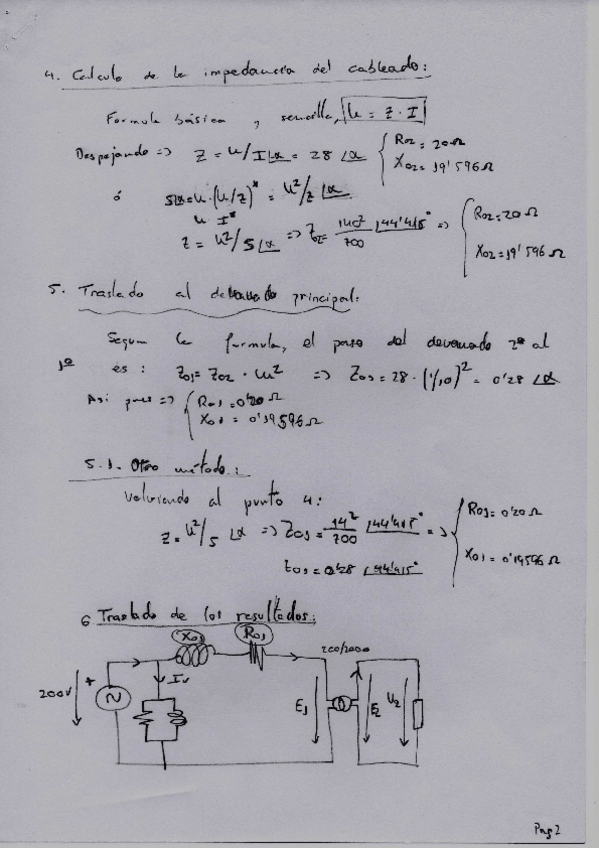 4. Calculo de la impedancia del cableado:
Formula básica y sencilla, U = Z · I
Despejando => Z = U/I ∠α = 28 ∠α { R02 = 20 Ω
X02 = 19'596 Ω
ó S∠α = U · (U/Z)* = U²/Z ∠α
U I*
Z = U²/S ∠α => Z02 = 140²/700 ∠44'415° => { R02 = 20 Ω
X02 = 19'596 Ω
5. Traslado al devanado principal:
Segun la formula, el paso del devanado 2º al
1º es: Z01 = Z02 · m² => Z01 = 28 · (1/10)² = 0'28 ∠α
Asi pues => { R01 = 0'20 Ω
X01 = 0'19596 Ω
5.1. Otro método:
Volviendo al punto 4:
Z = U²/S ∠α => Z01 = 14²/700 ∠44'415° => { R01 = 0'20 Ω
X01 = 0'19596 Ω
Z01 = 0'28 ∠44'415°
6 Traslado de los resultados:
X01 R01
200/2000
200V + Iv E1 E2 U2
Pag 2